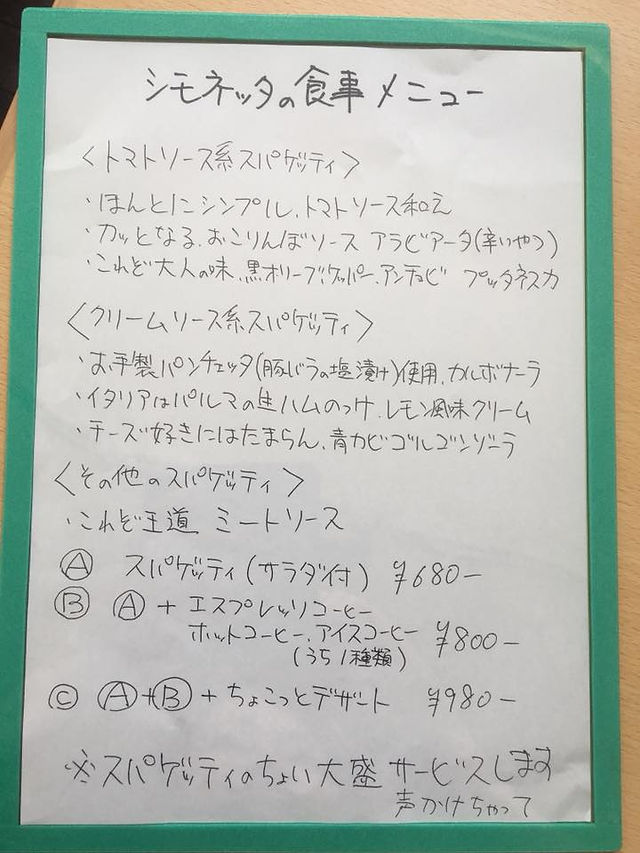 シモネッタの食事メニュー
〈トマトソース系スパゲッティ〉
・ほんとにシンプル、トマトソース和え
・カッとなる、おこりんぼソース アラビアータ(辛いやつ)
・これぞ大人の味、黒オリーブ、ケッパー、アンチョビ プッタネスカ
〈クリームソース系スパゲッティ〉
・お手製パンチェッタ(豚バラの塩漬け)使用、カルボナーラ
・イタリアはパルマの生ハムのっけ、レモン風味クリーム
・チーズ好きにはたまらん、青カビゴルゴンゾーラ
〈その他のスパゲッティ〉
・これぞ王道 ミートソース
Ⓐ スパゲッティ(サラダ付) ¥680-
Ⓑ Ⓐ+エスプレッソコーヒー
ホットコーヒー、アイスコーヒー ¥800-
(うち1種類)
Ⓒ Ⓐ+Ⓑ+ちょこっとデザート ¥980-
※スパゲッティのちょい大盛 サービスします
声かけちゃって